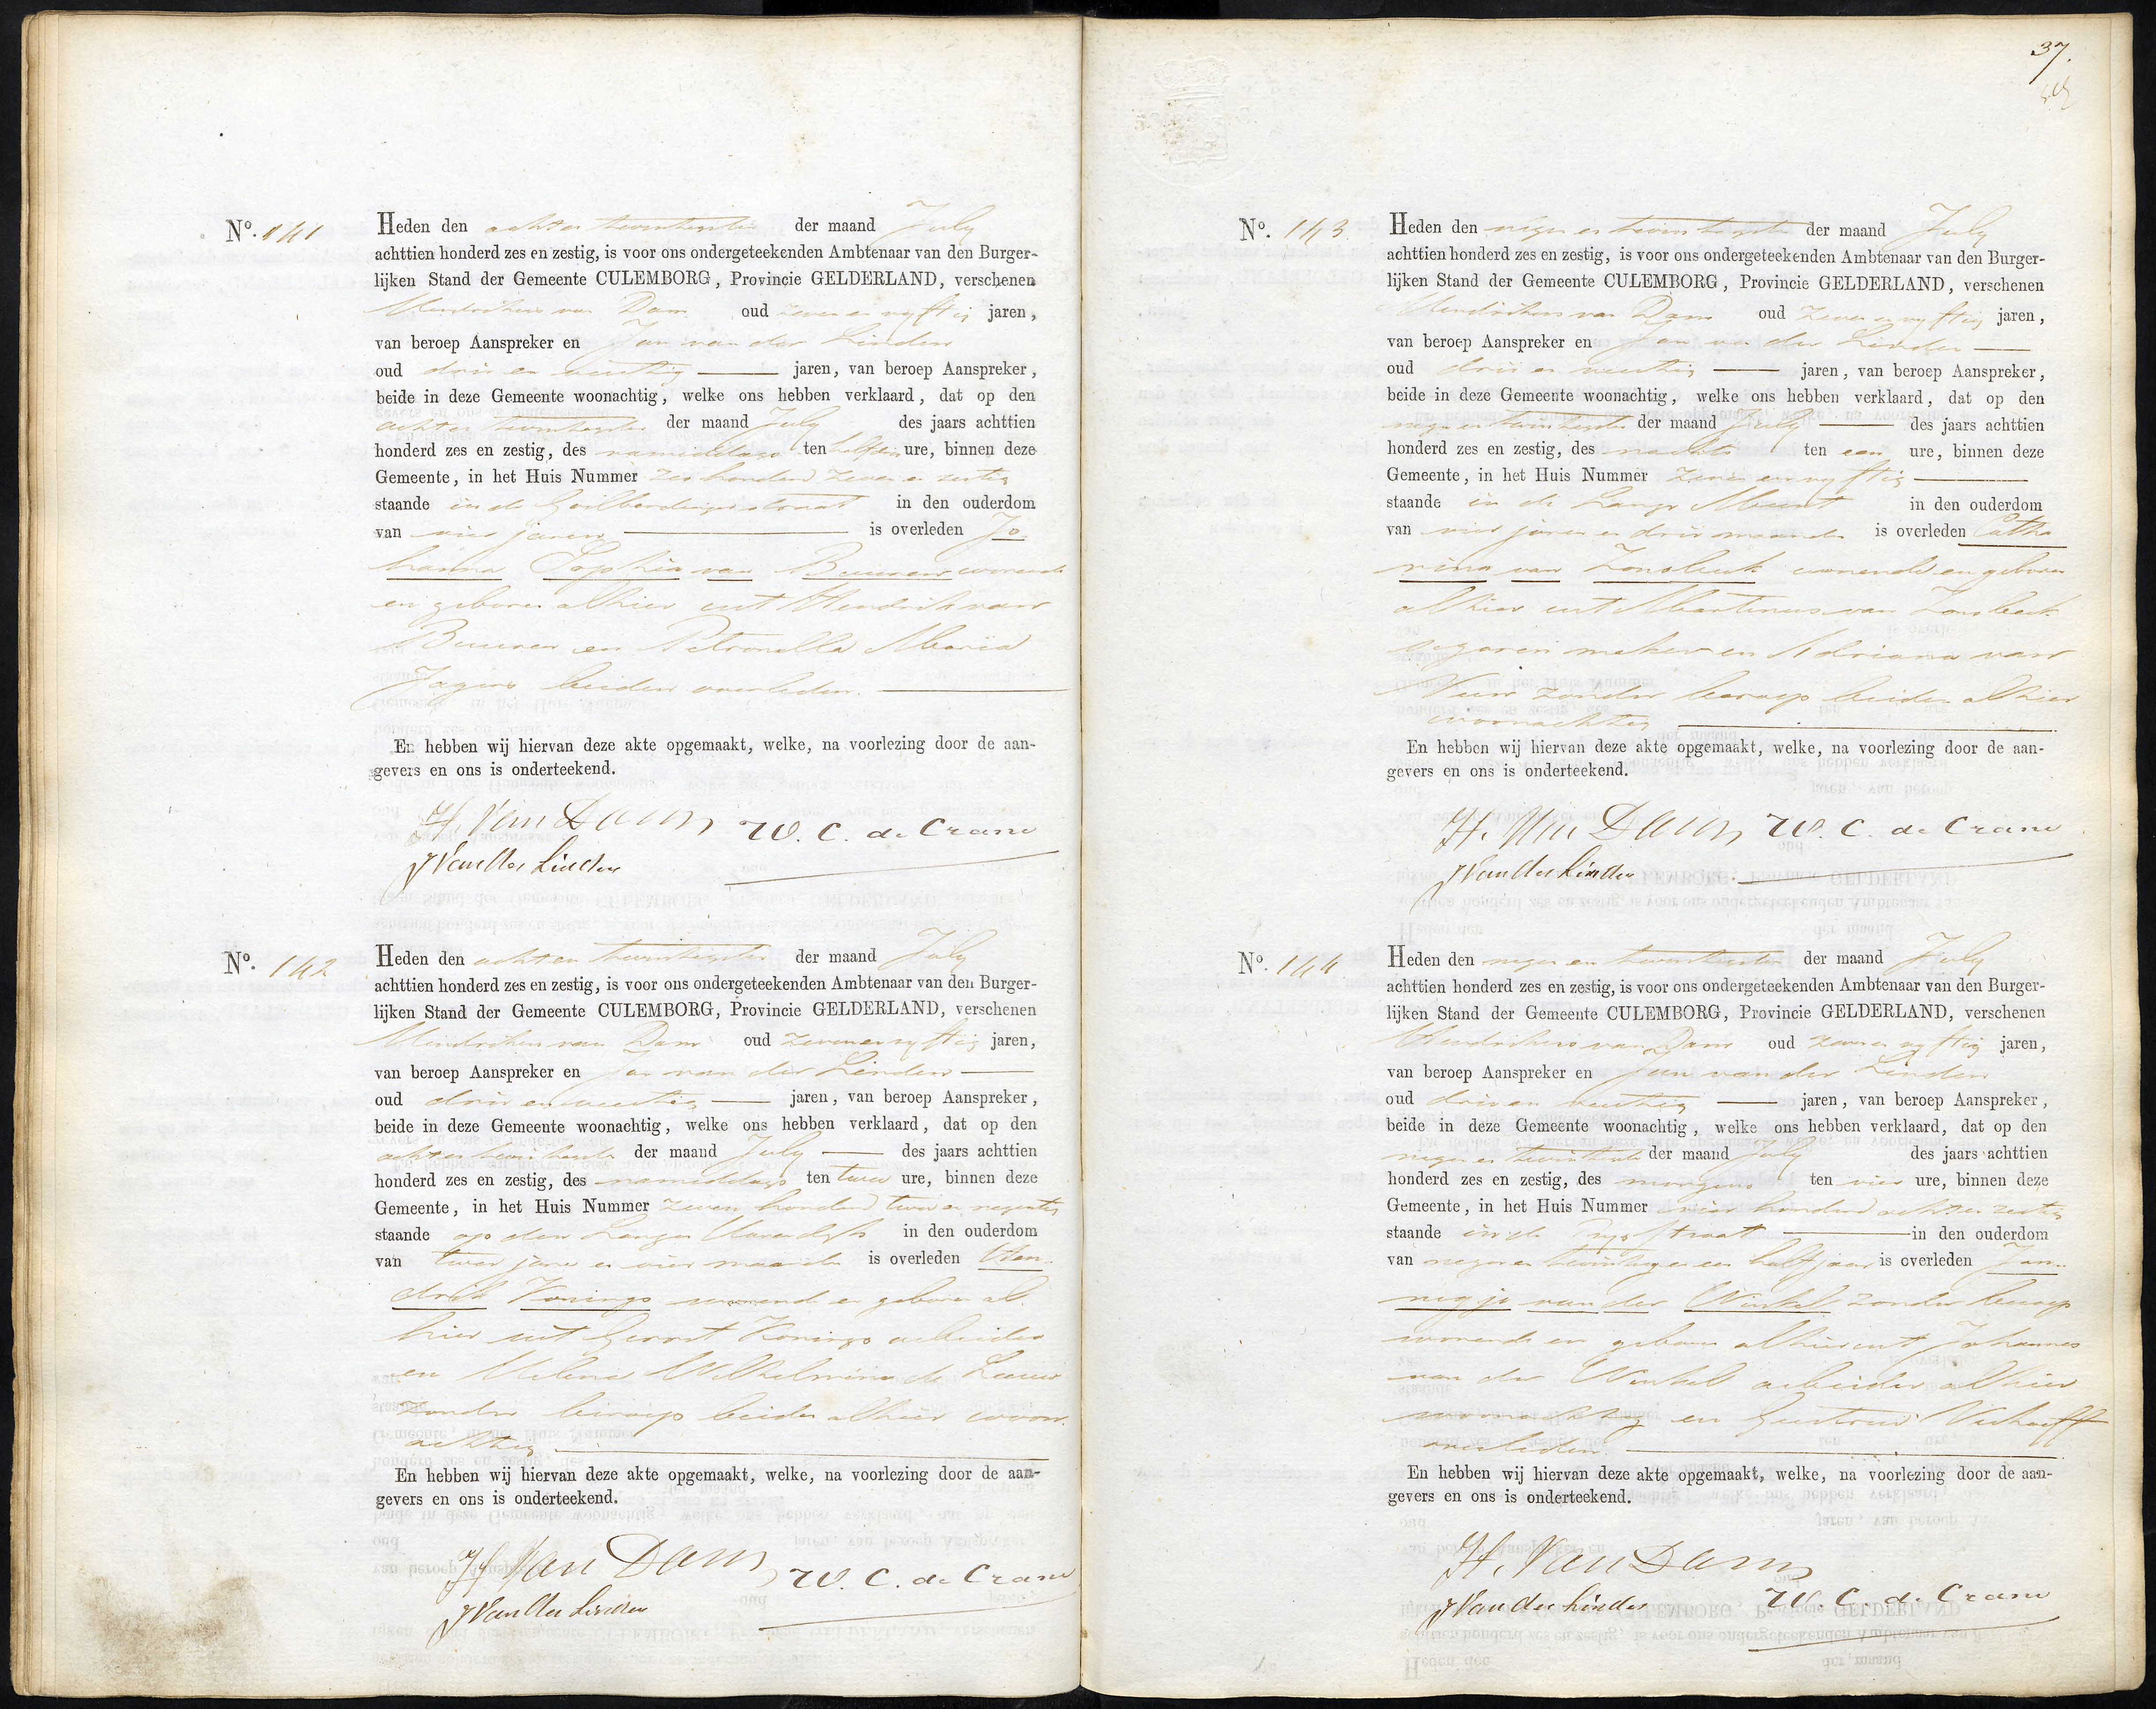 No. 141
Heden den acht en twintigsten der maand July
achttien honderd zes en zestig, is voor ons ondergeteekenden Ambtenaar van den Burger-
lijken Stand der Gemeente CULEMBORG, Provincie GELDERLAND, verschenen
Hendrikus van Dam oud zeven en vyftig jaren,
van beroep Aanspreker en Jan van der Linden
oud drie en veertig jaren, van beroep Aanspreker,
beide in deze Gemeente woonachtig, welke ons hebben verklaard, dat op den
acht en twintigsten der maand July des jaars achttien
honderd zes en zestig, des namiddags ten half een ure, binnen deze
Gemeente, in het Huis Nummer zes honderd zeven en zestig
staande in de Goilberdingerstraat in den ouderdom
van vier jaren is overleden Jo
hanna Sophia van Buuren wonende
en geboren alhier uit Hendrik van
Buuren en Petronella Maria
Jagers beiden overleden.
En hebben wij hiervan deze akte opgemaakt, welke, na voorlezing door de aan-
gevers en ons is onderteekend.
H Van Dam W. C. de Crane
J Van der Linden
No. 142
Heden den acht en twintigsten der maand July
achttien honderd zes en zestig, is voor ons ondergeteekenden Ambtenaar van den Burger-
lijken Stand der Gemeente CULEMBORG, Provincie GELDERLAND, verschenen
Hendrikus van Dam oud zeven en vyftig jaren,
van beroep Aanspreker en Jan van der Linden
oud drie en veertig jaren, van beroep Aanspreker,
beide in deze Gemeente woonachtig, welke ons hebben verklaard, dat op den
acht en twintigste der maand July des jaars achttien
honderd zes en zestig, des namiddags ten twee ure, binnen deze
Gemeente, in het Huis Nummer zeven honderd twee en negentig
staande op den Langen Havendyk in den ouderdom
van twee jaren en vier maanden is overleden Hen
drik Konings wonende en geboren al
hier uit Gerrit Konings arbeider
en Helena Wilhelmina de Leeuw
zonder beroep beiden alhier woon
achtig
En hebben wij hiervan deze akte opgemaakt, welke, na voorlezing door de aan-
gevers en ons is onderteekend.
H Van Dam W. C. de Crane
J Van der Linden
37.
No. 143
Heden den negen en twintigsten der maand July
achttien honderd zes en zestig, is voor ons ondergeteekenden Ambtenaar van den Burger-
lijken Stand der Gemeente CULEMBORG, Provincie GELDERLAND, verschenen
Hendrikus van Dam oud zeven en vyftig jaren,
van beroep Aanspreker en Jan van der Linden
oud drie en veertig jaren, van beroep Aanspreker,
beide in deze Gemeente woonachtig, welke ons hebben verklaard, dat op den
negen en twintigste der maand July des jaars achttien
honderd zes en zestig, des nachts ten een ure, binnen deze
Gemeente, in het Huis Nummer zeven en vyftig
staande in de Lange Meent in den ouderdom
van vier jaren en drie maanden is overleden Catha
rina van Zonsbeek wonende en geboren
alhier uit Martinus van Zonsbeek
segaren maker en Adriana van
zonder beroep beiden alhier
woonachtig
En hebben wij hiervan deze akte opgemaakt, welke, na voorlezing door de aan-
gevers en ons is onderteekend.
H. Van Dam W. C. de Crane
J Van der Linden
No. 144
Heden den negen en twintigsten der maand July
achttien honderd zes en zestig, is voor ons ondergeteekenden Ambtenaar van den Burger-
lijken Stand der Gemeente CULEMBORG, Provincie GELDERLAND, verschenen
Hendrikus van Dam oud zeven en vyftig jaren,
van beroep Aanspreker en Jan van der Linden
oud drie en veertig jaren, van beroep Aanspreker,
beide in deze Gemeente woonachtig, welke ons hebben verklaard, dat op den
negen en twintigste der maand July des jaars achttien
honderd zes en zestig, des morgens ten vier ure, binnen deze
Gemeente, in het Huis Nummer vier honderd acht en zestig
staande in de straat in den ouderdom
van negen en twintig en een half jaar is overleden Jan
negje van der Winkel zonder beroep
wonende en geboren alhier uit Johannes
van der Winkel arbeider alhier
woonachtig en Geertrui Verhoeff
overleden.
En hebben wij hiervan deze akte opgemaakt, welke, na voorlezing door de aan-
gevers en ons is onderteekend.
H. Van Dam
J Van der Linden W. C. de Crane